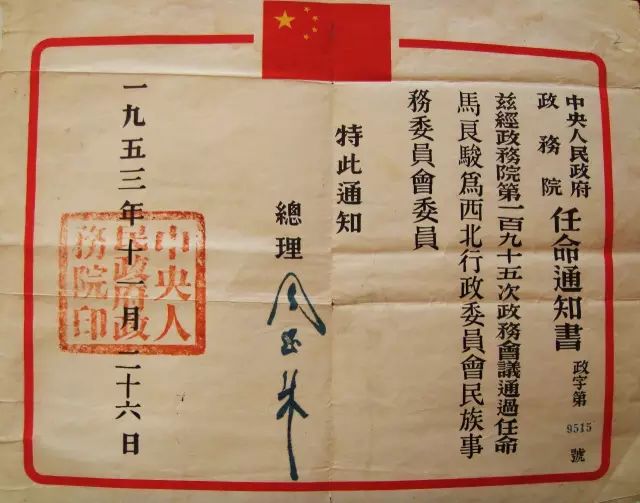 中央人民政府
政務院
任命通知書
政字第9515號
茲經政務院第一百九十五次政務會議通過任命
馬良駿爲西北行政委員會民族事
務委員會委員
特此通知
總理 周恩來
一九五三年十一月二十六日
中央人
民政府政
務院印